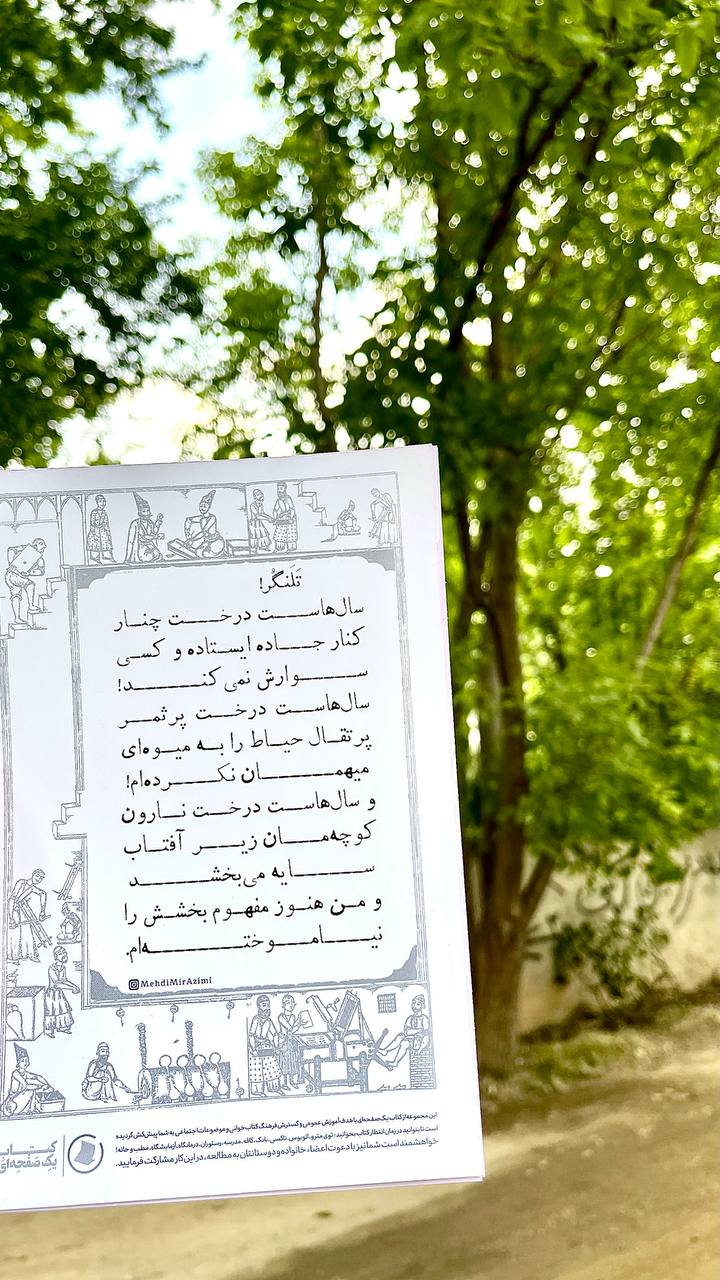 تَلَنگُر!
سال‌هاست درخت چنار
کنار جاده ایستاده و کسی
سوارش نمی کند!
سال‌هاست درخت پرثمر
پرتقال حیاط را به میوه‌ای
میهمان نکرده‌ام!
و سال‌هاست درخت نارون
کوچه‌مان زیر آفتاب
سایه می‌بخشد
و من هنوز مفهوم بخشش را
نیاموخته‌ام.
MehdiMirAzimi
این مجموعه از کتاب یک صفحه‌ای با هدف آموزش عمومی و گسترش فرهنگ کتاب‌خوانی و موضوعات اجتماعی به شما پیش‌کش گردیده
است تا بتوانید در زمان انتظار کتاب بخوانید؛ توی مترو، اتوبوس، تاکسی، بانک، کافه، مدرسه، رستوران، درمانگاه، آزمایشگاه، مطب و خانه!
خواهشمند است شما نیز با دعوت اعضاء خانواده و دوستانتان به مطالعه، در این کار مشارکت فرمایید.
کتاب
یک صفحه‌ای